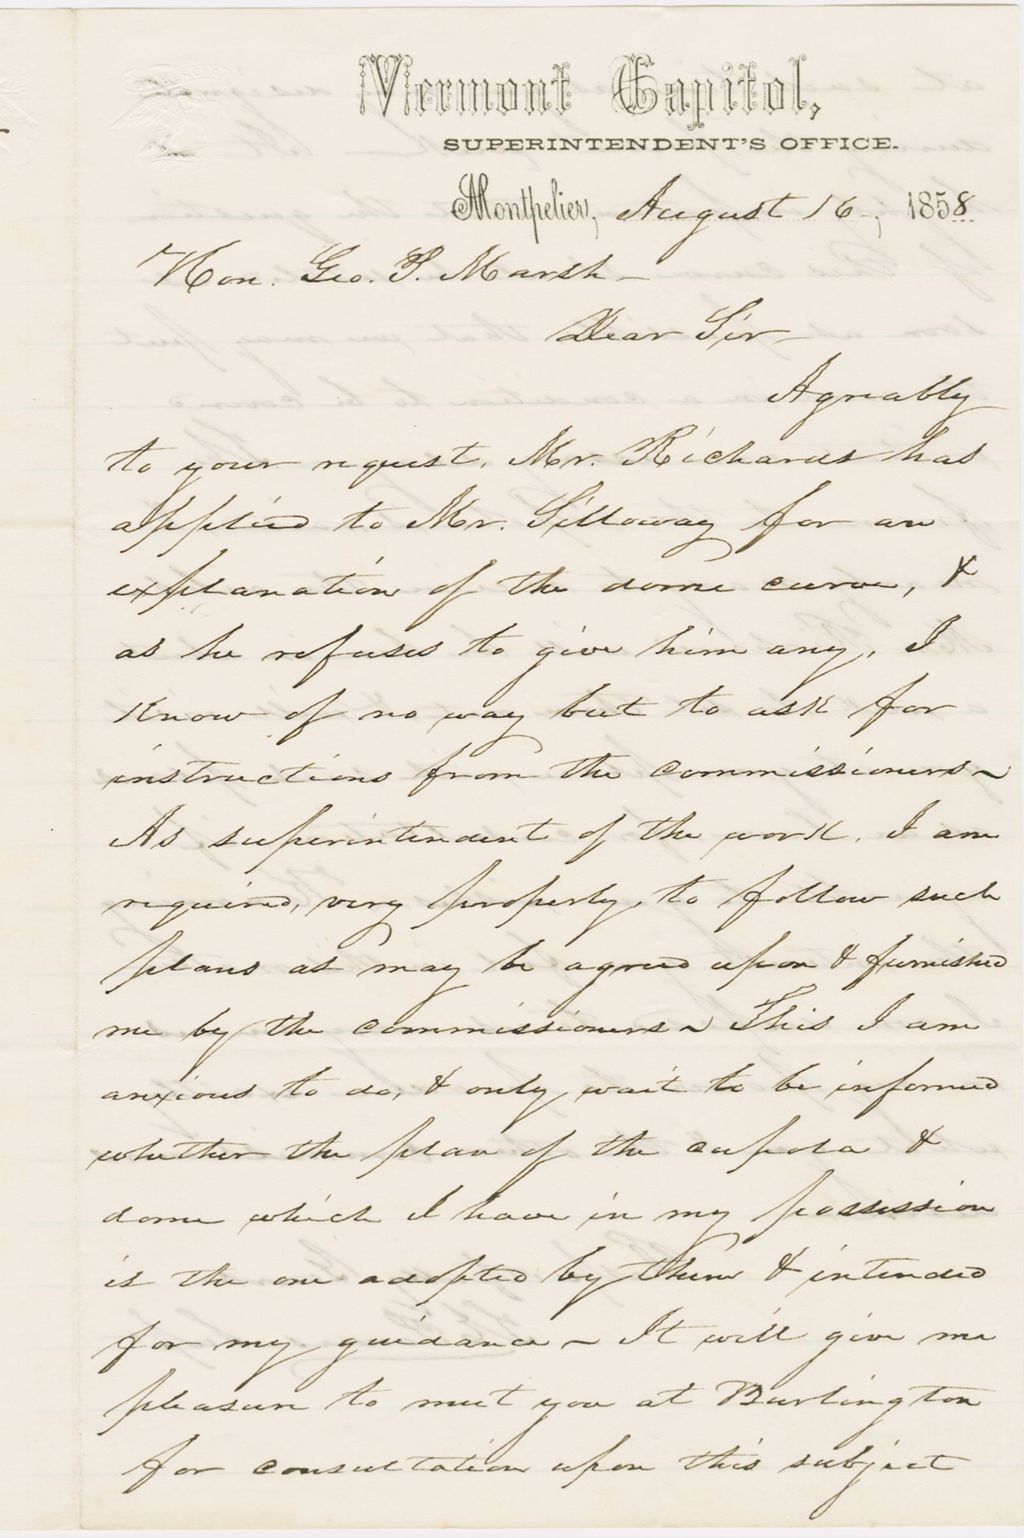 Vermont Capitol,
SUPERINTENDENT'S OFFICE.
Montpelier, August 16, 1858
Hon. Geo. P. Marsh -
Dear Sir -
Agreably
to your request, Mr. Richards has
applied to Mr. Silloway for an
explanation of the dome curve, &
as he refuses to give him any, I
know of no way but to ask for
instructions from the commissioners ~
As superintendent of the work, I am
required, very properly, to follow such
plans as may be agreed upon & furnished
me by the commissioners ~ This I am
anxious to do, & only wait to be informed
whether the plan of the cupola &
dome which I have in my possession
is the one adopted by them & intended
for my guidance ~ It will give me
pleasure to meet you at Burlington
for consultation upon this subject